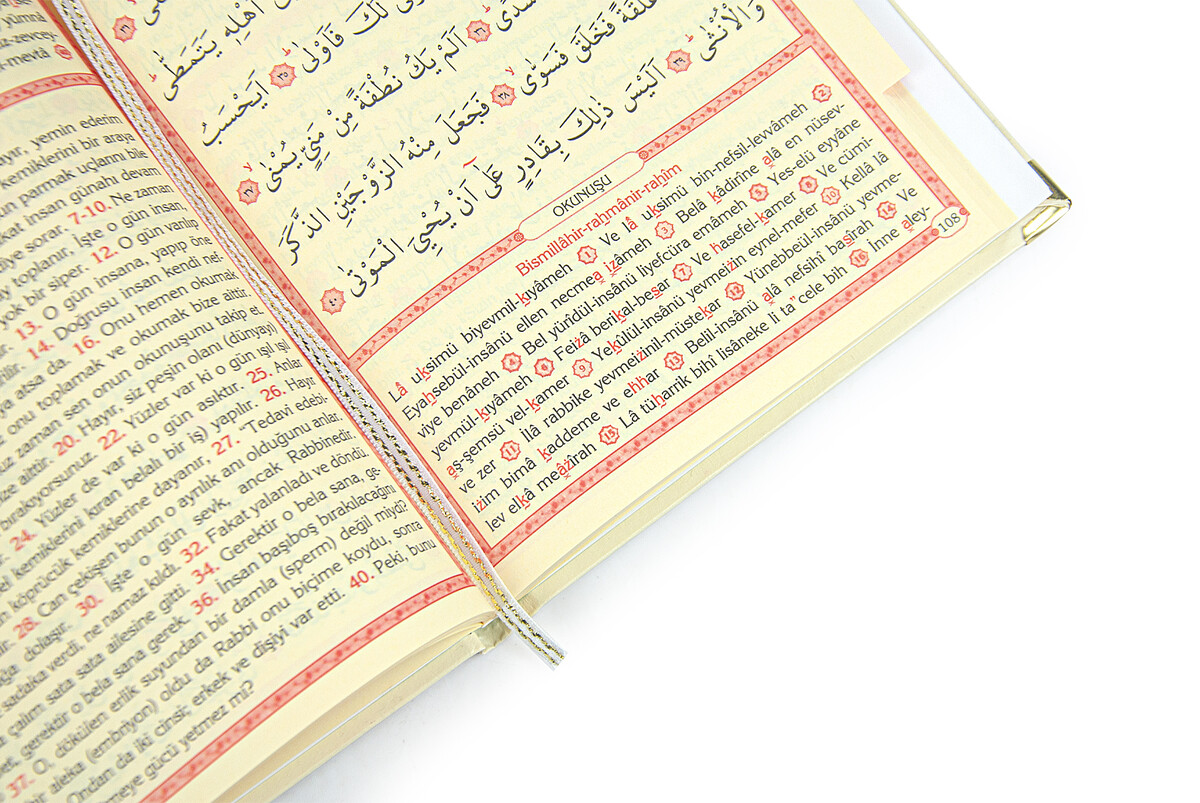 yümna
-zevcey-
-mevtâ
ayır, yemin ederim
kemiklerini bir araya
un parmak uçlarını bile
kat insan günahı devam
diye sorar. 7-10. Ne zaman
toplanır, İşte o gün insan,
yok bir siper. 12. O gün varılıp
13. O gün insana, yapıp öne
14. Doğrusu insan kendi nef-
atsa da. 16. Onu hemen okumak
onu toplamak ve okumak bize aittir.
zaman sen onun okunuşunu takip et.
aittir. 20. Hayır, siz peşin olanı (dünyayı)
bırakıyorsunuz. 22. Yüzler var ki o gün ışıl ışıl
24. Yüzler de var ki o gün asıktır. 25. Anlar
kemiklerini kıran belalı bir iş) yapılır. 26. Hayır
köprücük kemiklerine dayanır, 27. "Tedavi edebi-
28. Can çekişen bunun o ayrılık anı olduğunu anlar.
dolaşır. 30. İşte o gün sevk, ancak Rabbinedir.
sadaka verdi, ne namaz kıldı. 32. Fakat yalanladı ve döndü.
çalım sata sata ailesine gitti. 34. Gerektir o bela sana, ge-
gerektir o bela sana gerek. 36. İnsan başıboş bırakılacağını
37. O, dökülen erlik suyundan bir damla (sperm) değil miydi?
bir aleka (embriyon) oldu da Rabbi onu biçime koydu, sonra
Ondan da iki cinsi; erkek ve dişiyi var etti. 40. Peki, bunu
meye gücü yetmez mi?
اَهْلِهٖ يَتَمَطّٰى
لَكَ فَاَوْلٰى ﴿٣٥﴾ اَيَحْسَبُ
سُدًى ﴿٣٦﴾ اَلَمْ يَكُ نُطْفَةً مِنْ مَنِيٍّ يُمْنٰى ﴿٣٧﴾
عَلَقَةً فَخَلَقَ فَسَوّٰى ﴿٣٨﴾ فَجَعَلَ مِنْهُ الزَّوْجَيْنِ الذَّكَرَ
وَالْاُنْثٰى ﴿٣٩﴾ اَلَيْسَ ذٰلِكَ بِقَادِرٍ عَلٰٓى اَنْ يُحْيِيَ الْمَوْتٰى ﴿٤٠﴾
OKUNUŞU
Bismillâhir-rahmânir-rahîm
Lâ uksimü biyevmil-kıyâmeh 1 Ve lâ uksimü bin-nefsil-levvâmeh 2
Eyahsebül-insânü ellen necmea izâmeh 3 Belâ kâdirîne alâ en nüsev-
viye benâneh 4 Bel yürîdül-insânü liyefcüra emâmeh 5 Yes-elü eyyâne
yevmül-kıyâmeh 6 Feizâ berikal-besar 7 Ve hasefel-kamer 8 Ve cümi-
aş-şemsü vel-kamer 9 Yekûlül-insânü yevmeizin eynel-mefer 10 Kellâ lâ
ve zer 11 İlâ rabbike yevmeizinil-müstekar 12 Yünebbeül-insânü yevme-
izim bimâ kaddeme ve ehhar 13 Belil-insânü alâ nefsihî basîrah 14 Ve
lev elkâ meâzîrah 15 Lâ tüharrik bihî lisâneke li ta"cele bih 16 İnne aley-
108